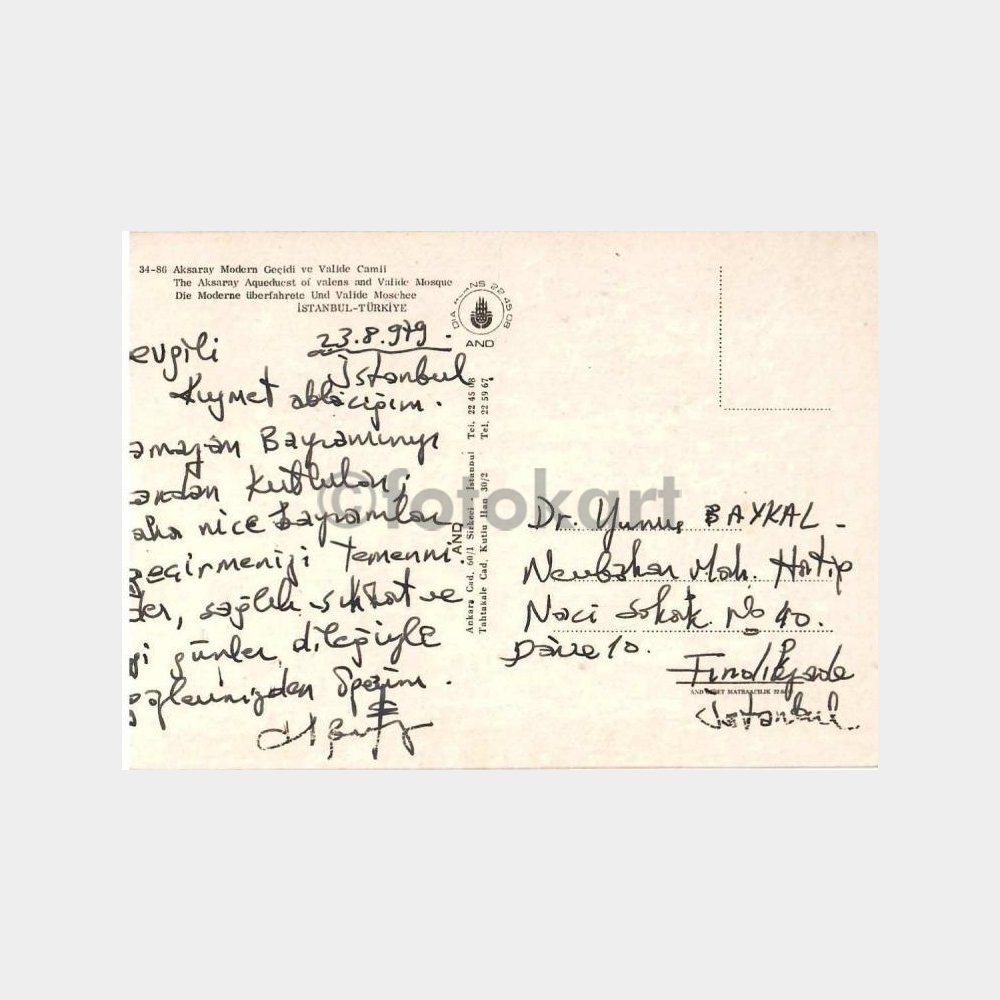 34-86 Aksaray Modern Geçidi ve Valide Camii
The Aksaray Aqueduest of valens and Valide Mosque
Die Moderne überfahrete Und Valide Moschee
İSTANBUL-TÜRKİYE
23.8.979.
İstanbul.
evgili
Kıymet ablacığım.
amazan Bayramınızı
andan kutlular;
aha nice bayramları
geçirmenizi temenni
der, sağlık sıhhat ve
yi günler dileğiyle
özlerinizden öperim.
AND
Ankara Cad. 60/1 Sirkeci - İstanbul Tel. 22 45 08
Tahtakale Cad. Kutlu Han 30/2 Tel. 22 59 67
AND
©fotokart
Dr. Yunus BAYKAL -
Nevbahar Mah. Hatip
Naci sokak No 40.
Daire 10.
Fındıkzade
İstanbul..